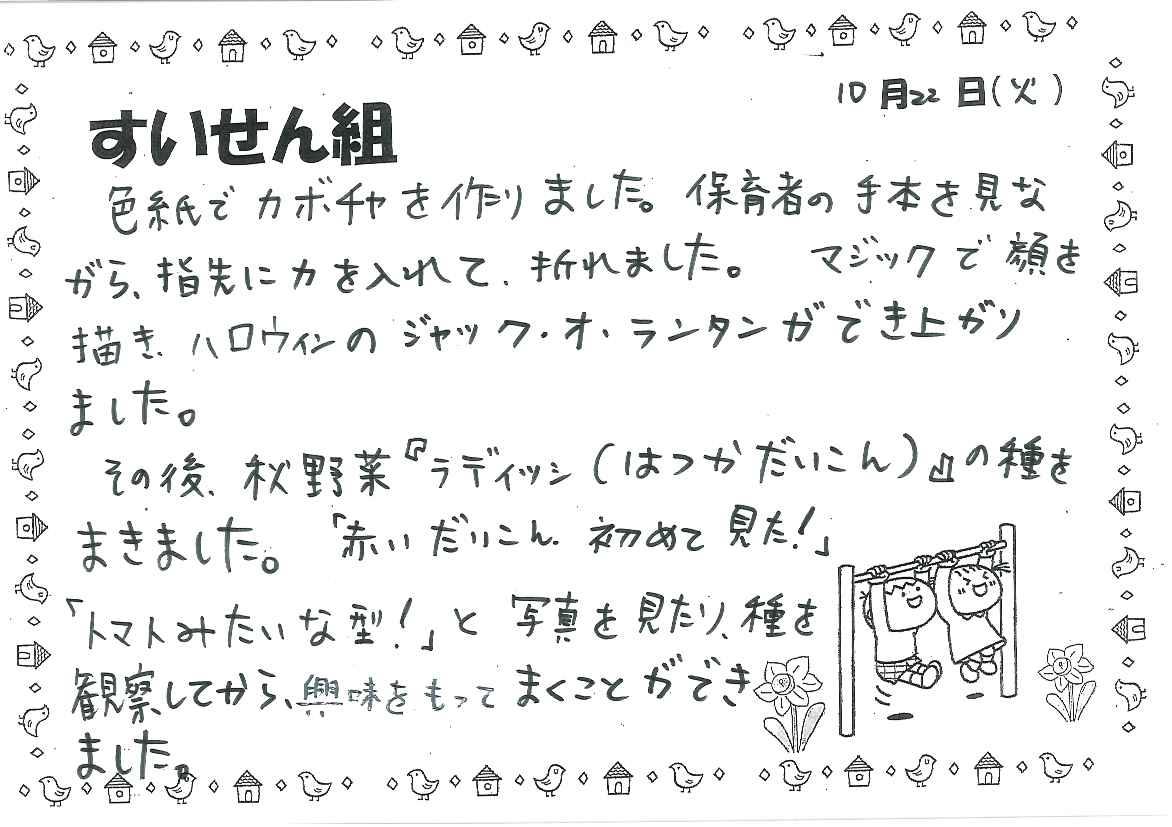 10月22日(火)
すいせん組
色紙でカボチャを作りました。保育者の手本を見な
がら、指先に力を入れて、折れました。マジックで顔を
描き、ハロウィンのジャック・オ・ランタンができ上がり
ました。
その後、秋野菜『ラディッシ(はつかだいこん)』の種を
まきました。「赤いだいこん、初めて見た!」
「トマトみたいな型!」と写真を見たり、種を
観察してから、興味をもってまくことができ
ました。